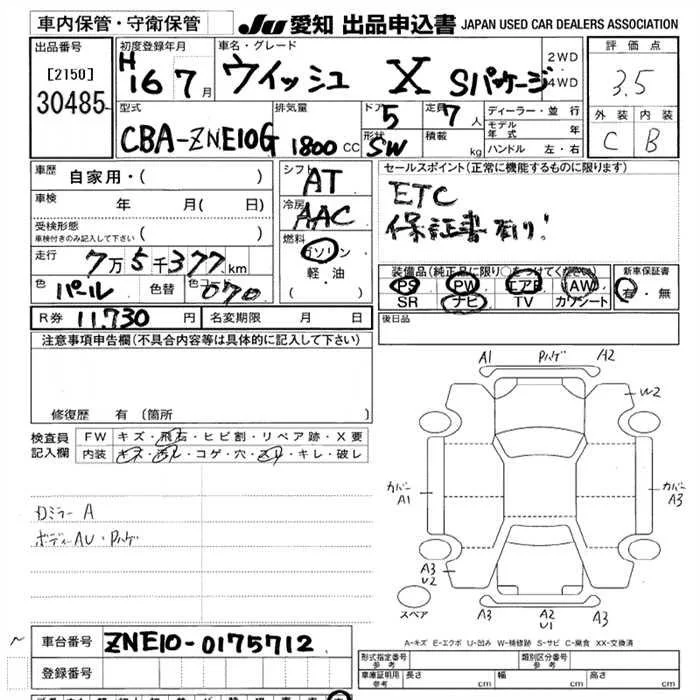 車内保管・守衛保管 JU 愛知 出品申込書 JAPAN USED CAR DEALERS ASSOCIATION
出品番号 初度登録年月 車名・グレード 2WD 評価点
[2150] H 16 7月 ウイッシュ X Sパッケージ 4WD 3.5
30485 型式 排気量 ドア 定員 ディーラー・並行 外装 内装
CBA-ZNE10G 1800 CC 5 7人 モデル年式 年 C B
形状 SW 積載 kg ハンドル 左・右
車歴 自家用・( ) シフト AT セールスポイント(正常に機能するものに限ります)
車検 年 月( 日) 冷房 AAC ETC
受検形態 車検付きのみ記入して下さい ( ) 燃料 保証書有り!
走行 7万5千377km ガソリン 装備品(純正品に限り○をつけてください) 新車保証書
色 パール 色替 色コード 070 軽・油 PS PW エアB AW 有・無
( ) SR ナビ TV カワシート
R券 11.730 円 名変期限 月 日 後日品
注意事項申告欄(不具合内容等は具体的に記入して下さい)
修復歴 有(箇所
検査員 FW キズ・飛石・ヒビ割・リペア跡・X要
記入欄 内装 キズ・汚レ・コゲ・穴・スリ・キレ・破レ
A1 Pハゲ A2
W2
カバー A1
カバー A3
Dミラー A
ボディーAU・Pハゲ
A3 U2
A3
スペア A3 A2 U1 A3
A-キズ E-エクボ U-凹み W-補修跡 S-サビ C-腐食 XX-交換済
車台番号 ZNE10-0175712
形式指定番号 参考 類別区分番号 参考
登録番号 車庫証明用 参考 長さ 幅 高さ